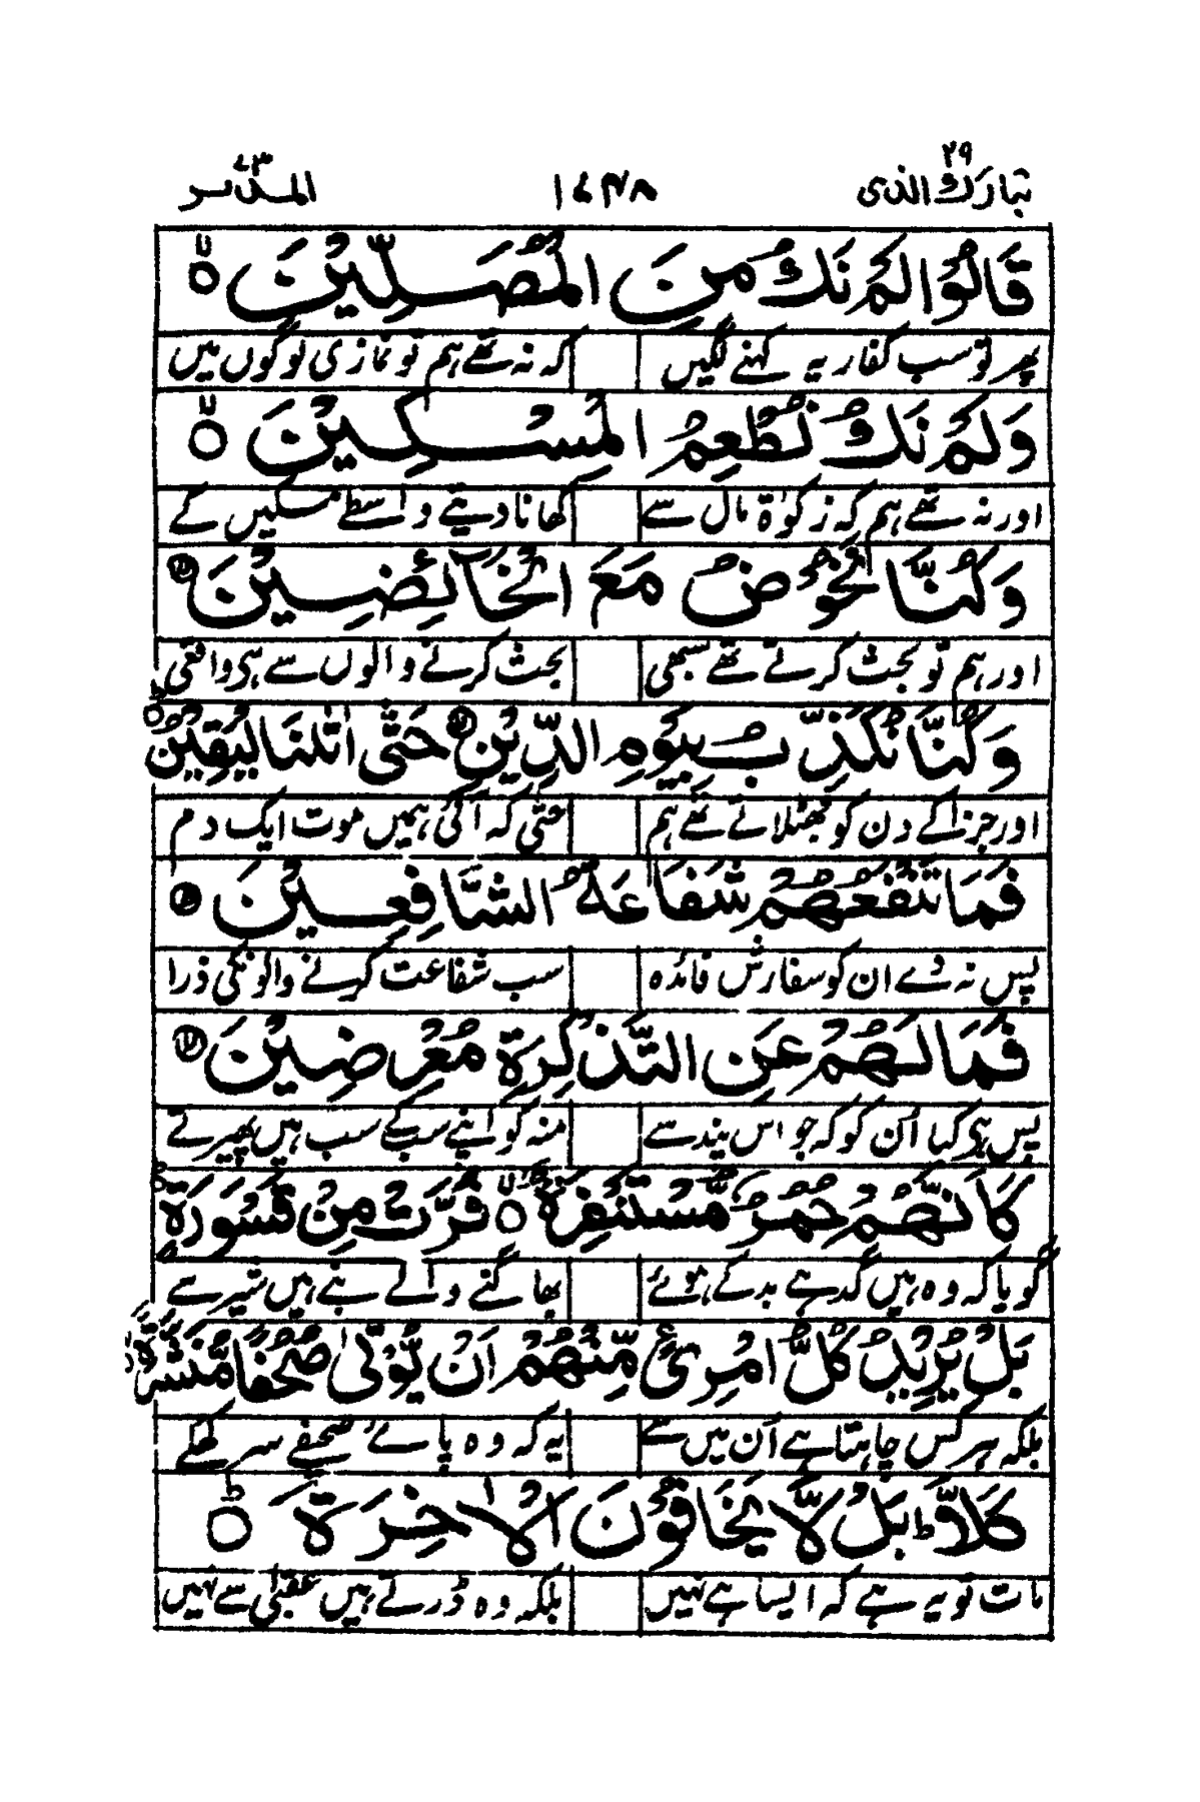 تبارك الذی ٢٩ ١٤٣٨ المدثر ٧٣
قَالُوْا لَمْ نَكُ مِنَ الْمُصَلِّيْنَ
پھر تو سب کفار یہ کہنے لگیں کہ نہ تھے ہم تو نمازی لوگوں میں
وَلَمْ نَكُ نُطْعِمُ الْمِسْكِيْنَ
اور نہ تھے ہم کہ زکوٰۃ مال سے کھانا دیتے واسطے مسکیں کے
وَكُنَّا نَخُوْضُ مَعَ الْخَآئِضِيْنَ
اور ہم تو بحث کرتے تھے سبھی بحث کرنے والوں سے ہی واقعی
وَكُنَّا نُكَذِّبُ بِيَوْمِ الدِّيْنِ حَتّٰى اَتٰىنَا الْيَقِيْنُ
اور جزا کے دن کو جھٹلاتے تھے ہم حتٰی کہ آگئی ہمیں موت ایک دم
فَمَا تَنْفَعُهُمْ شَفَاعَةُ الشَّافِعِيْنَ
پس نہ دے ان کو سفارش فائدہ سب شفاعت کرنے والونکی ذرا
فَمَا لَهُمْ عَنِ التَّذْكِرَةِ مُعْرِضِيْنَ
پس ہے کیا اُن کو کہ جو اس پند سے منہ کو اپنے سب کے سب ہیں پھیرتے
كَاَنَّهُمْ حُمُرٌ مُّسْتَنْفِرَةٌ فَرَّتْ مِنْ قَسْوَرَةٍ
گویا کہ وہ ہیں گدہے بدکے ہوئے بھاگنے والے بنے ہیں شیر سے
بَلْ يُرِيْدُ كُلُّ امْرِئٍ مِّنْهُمْ اَنْ يُّؤْتٰى صُحُفًا مُّنَشَّرَةً
بلکہ ہر کس چاہتا ہے اُن میں سے یہ کہ وہ پائے صحیفے سر کھلے
كَلَّا بَلْ لَّا يَخَافُوْنَ الْاٰخِرَةَ
بات تو یہ ہے کہ ایسا ہے نہیں بلکہ وہ ڈرتے ہیں عقبٰی سے نہیں